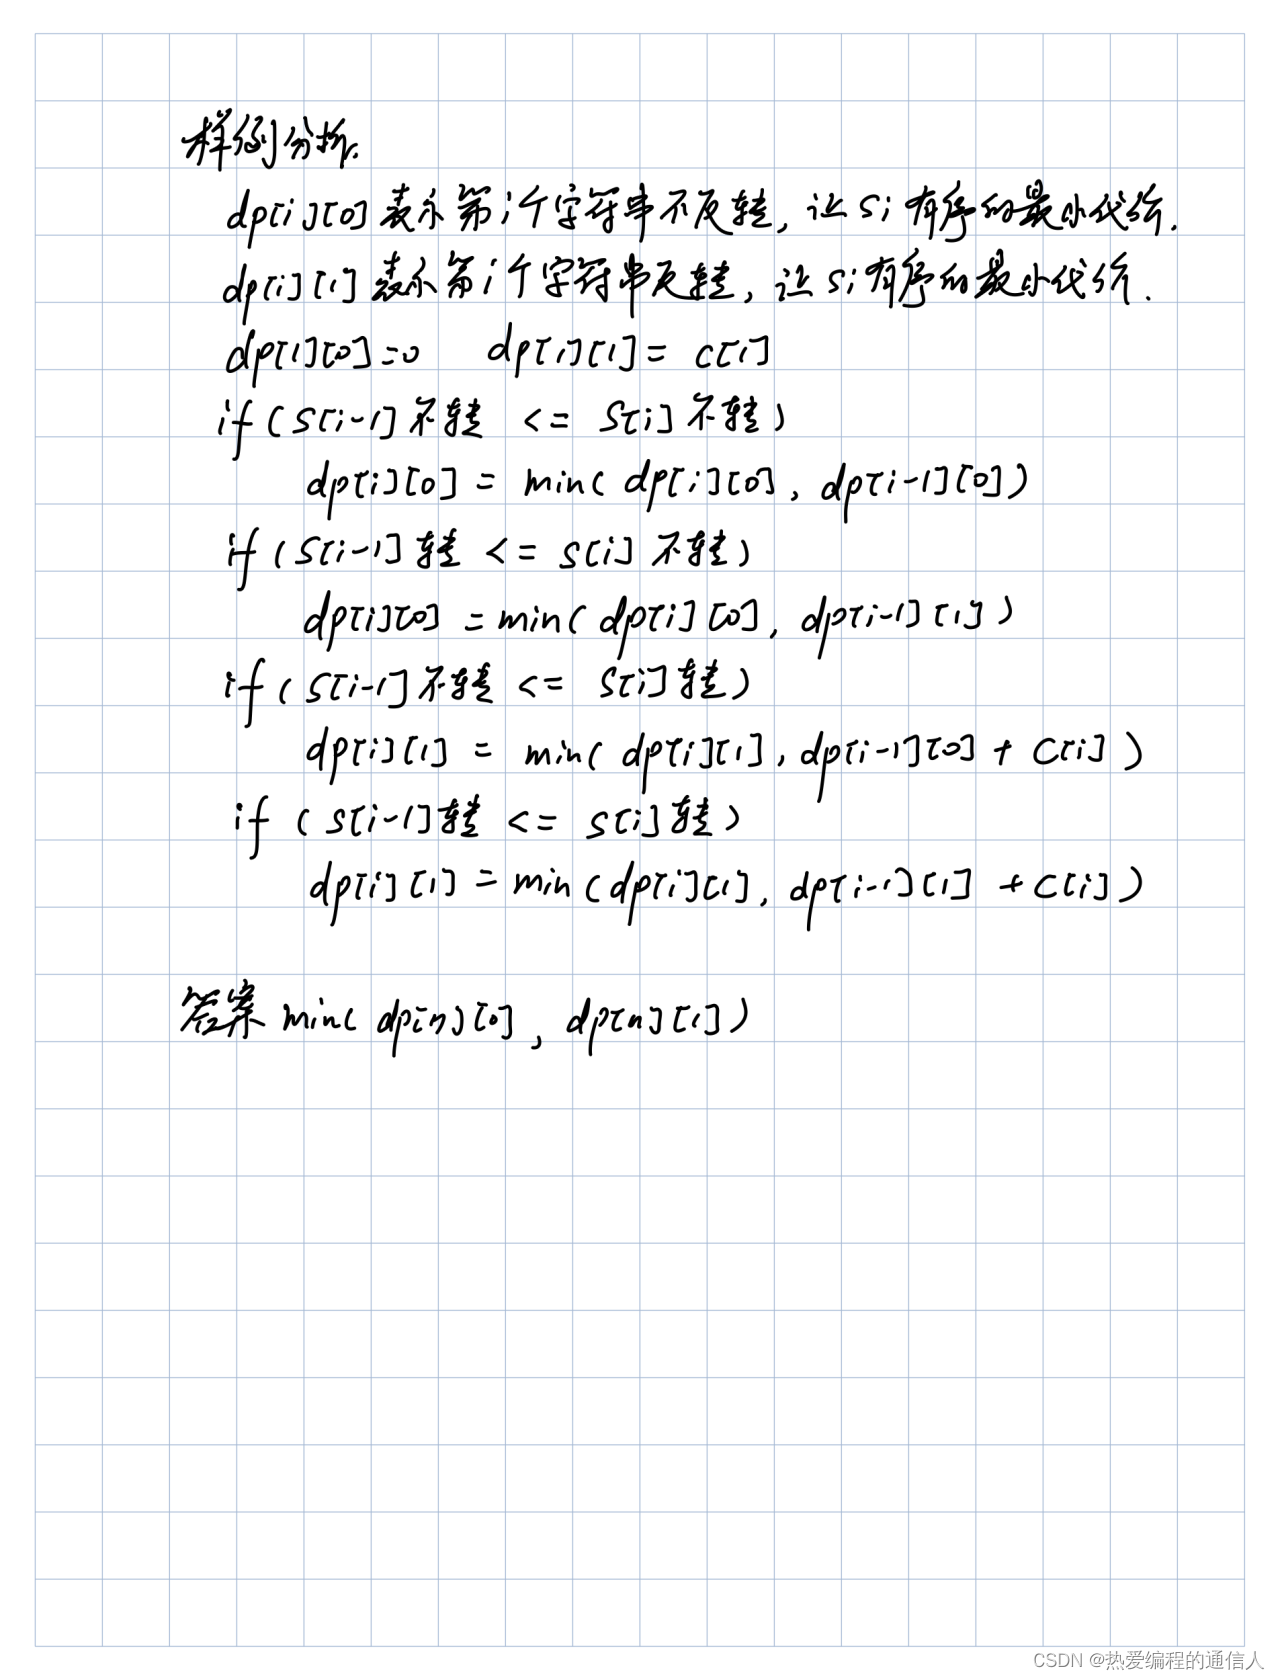 样例分析.
dp[i][0]表示第i个字符串不反转,让Si有序的最小代价.
dp[i][1]表示第i个字符串反转,让Si有序的最小代价.
dp[1][0]=0 dp[1][1]= c[1]
if(S[i-1]不转 <= S[i]不转)
dp[i][0] = min( dp[i][0], dp[i-1][0])
if(S[i-1]转 <= S[i]不转)
dp[i][0] = min( dp[i][0], dp[i-1][1])
if( S[i-1]不转 <= S[i]转)
dp[i][1] = min( dp[i][1], dp[i-1][0] + C[i] )
if ( S[i-1]转 <= S[i]转)
dp[i][1] = min (dp[i][1], dp[i-1][1] + C[i] )
答案 min( dp[n][0], dp[n][1])
CSDN @热爱编程的通信人